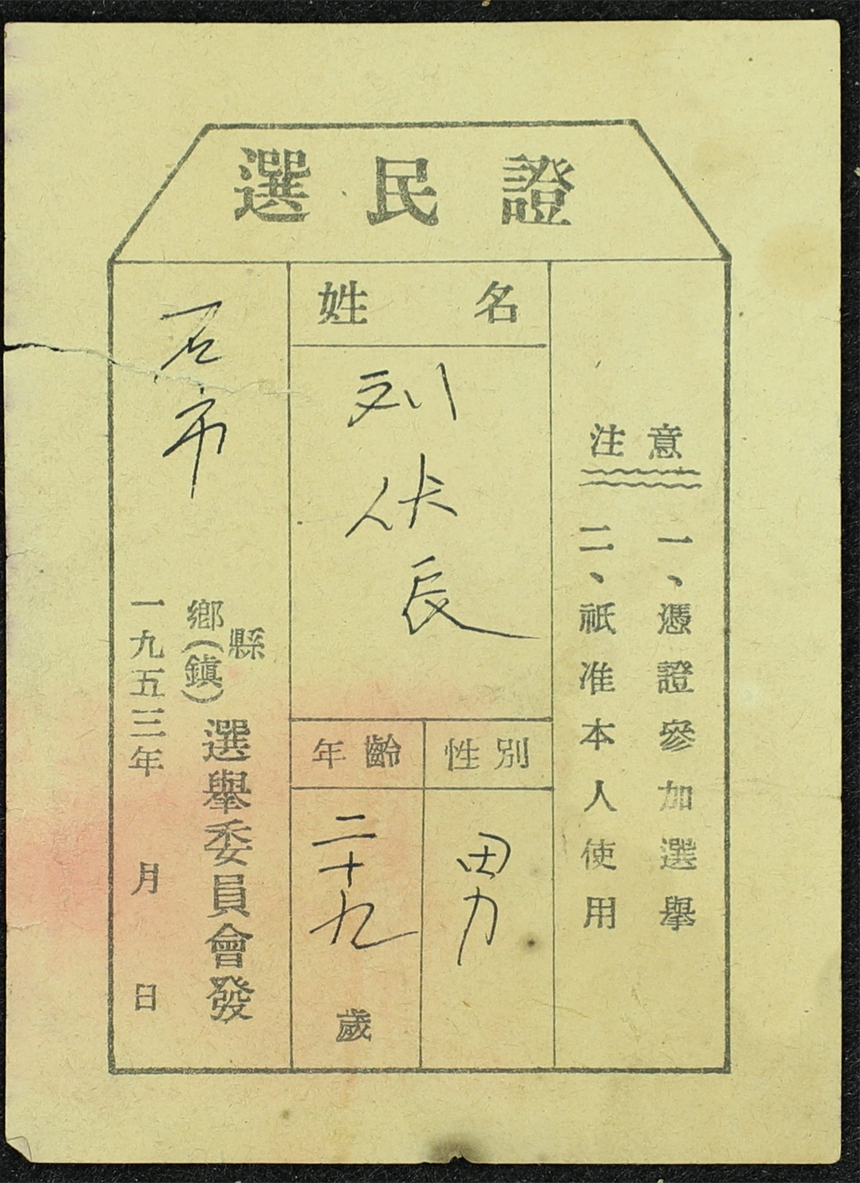 選民證
注意
一、憑證參加選舉
二、祇准本人使用
姓名
刘伏長
性別
男
年齡
二十九
歲
石市
縣
鄉(鎮)
選舉委員會發
一九五三年 月 日